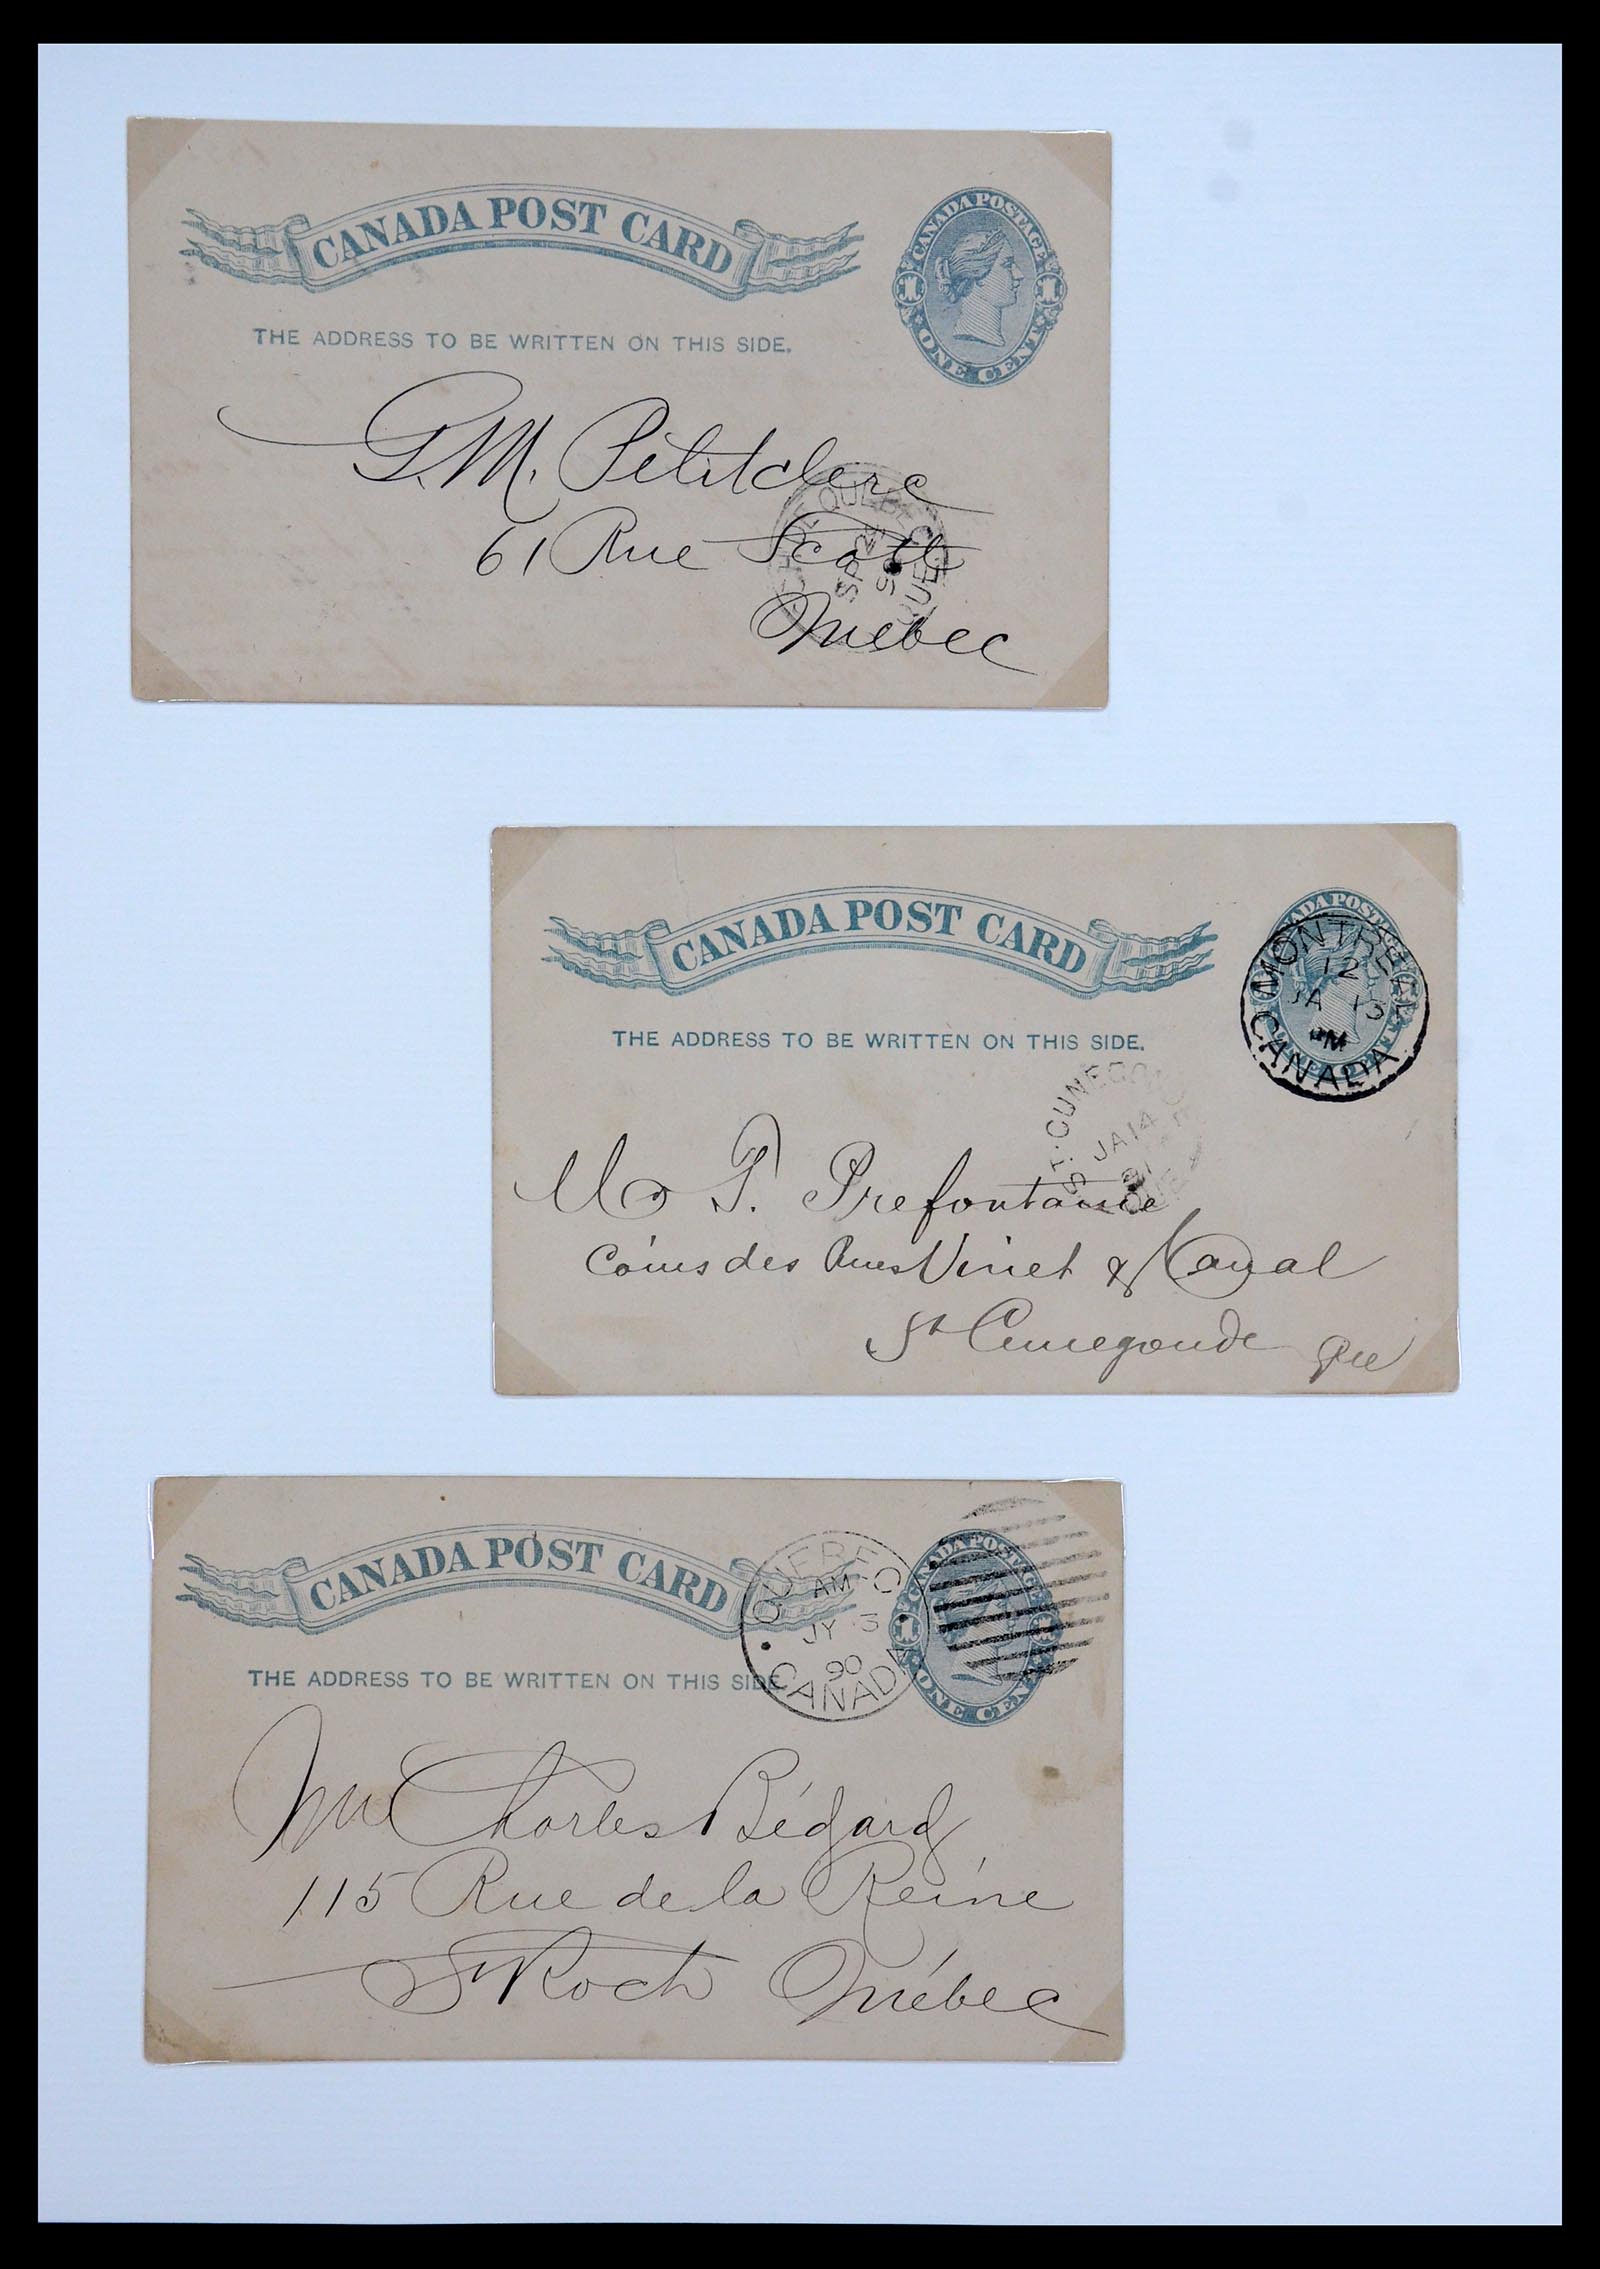 CANADA POST CARD
CANADA POSTAGE
1 1
ONE CENT
THE ADDRESS TO BE WRITTEN ON THIS SIDE.
G.M. Petitclerc
61 Rue Scott
Québec
QUEBEC
SP 24
QUEBEC
CANADA POST CARD
CANADA POSTAGE
MONTREAL
12
JA 13
PM
CANADA
THE ADDRESS TO BE WRITTEN ON THIS SIDE.
ST. CUNEGONDE
JA 14
91
QUE
Mr T. Prefontaine
Coins des Rues Vinet & Canal
St Cunegonde Que
CANADA POST CARD
CANADA POSTAGE
1
ONE CENT
QUEBEC
AM
JY 3
90
CANADA
THE ADDRESS TO BE WRITTEN ON THIS SIDE.
Mr Charles Bédard
115 Rue de la Reine
St Roch Québec